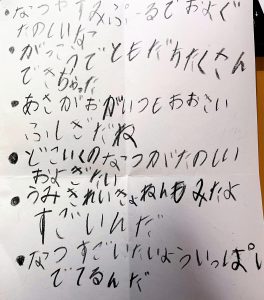 ・なつやすみぷーるでおよぐ
たのしいなこ
・がっこうでともだちたくさん
できちゃった
・あさがおがいつもおおきい
ふしぎだね
・どこいくのなつがたのしい
およぎたい
・うみきれいきょねんもみたよ
すごいんだ
・なつすごいたいよういっぱい
でてるんだ